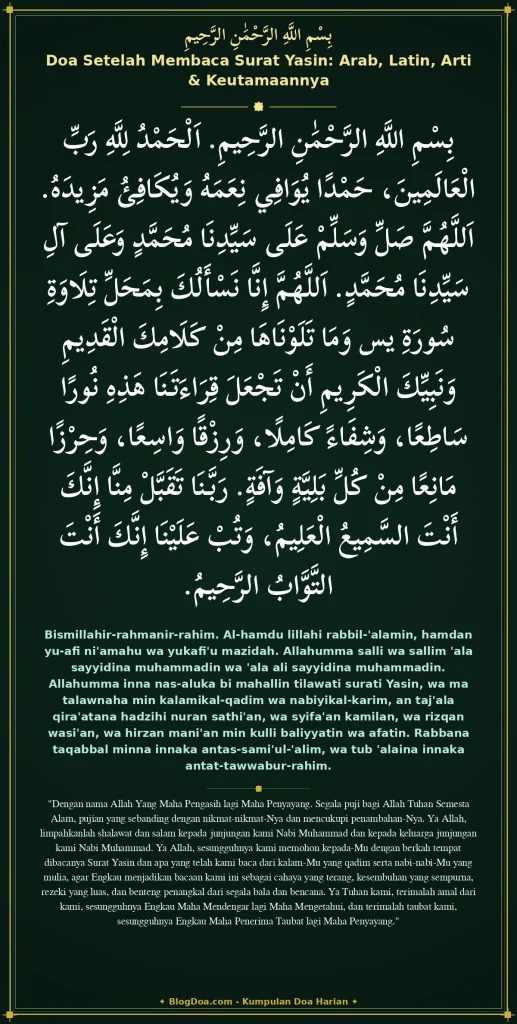 بِسْمِ اللَّهِ الرَّحْمَٰنِ الرَّحِيمِ
Doa Setelah Membaca Surat Yasin: Arab, Latin, Arti
& Keutamaannya
بِسْمِ اللَّهِ الرَّحْمَٰنِ الرَّحِيمِ. اَلْحَمْدُ لِلَّهِ رَبِّ
الْعَالَمِينَ، حَمْدًا يُوَافِي نِعَمَهُ وَيُكَافِئُ مَزِيدَهُ.
اَللَّهُمَّ صَلِّ وَسَلِّمْ عَلَى سَيِّدِنَا مُحَمَّدٍ وَعَلَى آلِ
سَيِّدِنَا مُحَمَّدٍ. اَللَّهُمَّ إِنَّا نَسْأَلُكَ بِمَحَلِّ تِلَاوَةِ
سُورَةِ يس وَمَا تَلَوْنَاهَا مِنْ كَلَامِكَ الْقَدِيمِ
وَنَبِيِّكَ الْكَرِيمِ أَنْ تَجْعَلَ قِرَاءَتَنَا هَذِهِ نُورًا
سَاطِعًا، وَشِفَاءً كَامِلًا، وَرِزْقًا وَاسِعًا، وَحِرْزًا
مَانِعًا مِنْ كُلِّ بَلِيَّةٍ وَآفَةٍ. رَبَّنَا تَقَبَّلْ مِنَّا إِنَّكَ
أَنْتَ السَّمِيعُ الْعَلِيمُ، وَتُبْ عَلَيْنَا إِنَّكَ أَنْتَ
التَّوَّابُ الرَّحِيمُ.
Bismillahir-rahmanir-rahim. Al-hamdu lillahi rabbil-'alamin, hamdan
yu-afi ni'amahu wa yukafi'u mazidah. Allahumma salli wa sallim 'ala
sayyidina muhammadin wa 'ala ali sayyidina muhammadin.
Allahumma inna nas-aluka bi mahallin tilawati surati Yasin, wa ma
talawnaha min kalamikal-qadim wa nabiyikal-karim, an taj'ala
qira'atana hadzihi nuran sathi'an, wa syifa'an kamilan, wa rizqan
wasi'an, wa hirzan mani'an min kulli baliyyatin wa afatin. Rabbana
taqabbal minna innaka antas-sami'ul-'alim, wa tub 'alaina innaka
antat-tawwabur-rahim.
"Dengan nama Allah Yang Maha Pengasih lagi Maha Penyayang. Segala puji bagi Allah Tuhan Semesta
Alam, pujian yang sebanding dengan nikmat-nikmat-Nya dan mencukupi penambahan-Nya. Ya Allah,
limpahkanlah shalawat dan salam kepada junjungan kami Nabi Muhammad dan kepada keluarga junjungan
kami Nabi Muhammad. Ya Allah, sesungguhnya kami memohon kepada-Mu dengan berkah tempat
dibacanya Surat Yasin dan apa yang telah kami baca dari kalam-Mu yang qadim serta nabi-nabi-Mu yang
mulia, agar Engkau menjadikan bacaan kami ini sebagai cahaya yang terang, kesembuhan yang sempurna,
rezeki yang luas, dan benteng penangkal dari segala bala dan bencana. Ya Tuhan kami, terimalah amal dari
kami, sesungguhnya Engkau Maha Mendengar lagi Maha Mengetahui, dan terimalah taubat kami,
sesungguhnya Engkau Maha Penerima Taubat lagi Maha Penyayang."
✦ BlogDoa.com - Kumpulan Doa Harian ✦